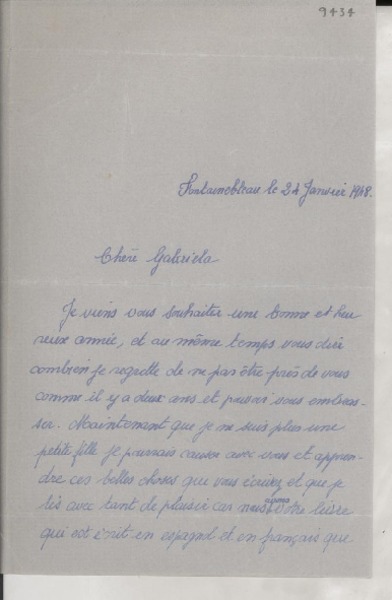 9434
Fontainebleau le 24 Janvier 1948.
Chère Gabriela
Je viens vous souhaiter une bonne et heu
reuse année, et au même temps vous dire
combien je regrette de ne pas être près de vous
comme il y a deux ans et pouvoir vous embras-
ser. Maintenant que je ne suis plus une
petite fille je pourrais causer avec vous et appren-
dre ces belles choses que vous écrivez et que je
lis avec tant de plaisir car nous avons votre livre
qui est écrit en espagnol et en français que